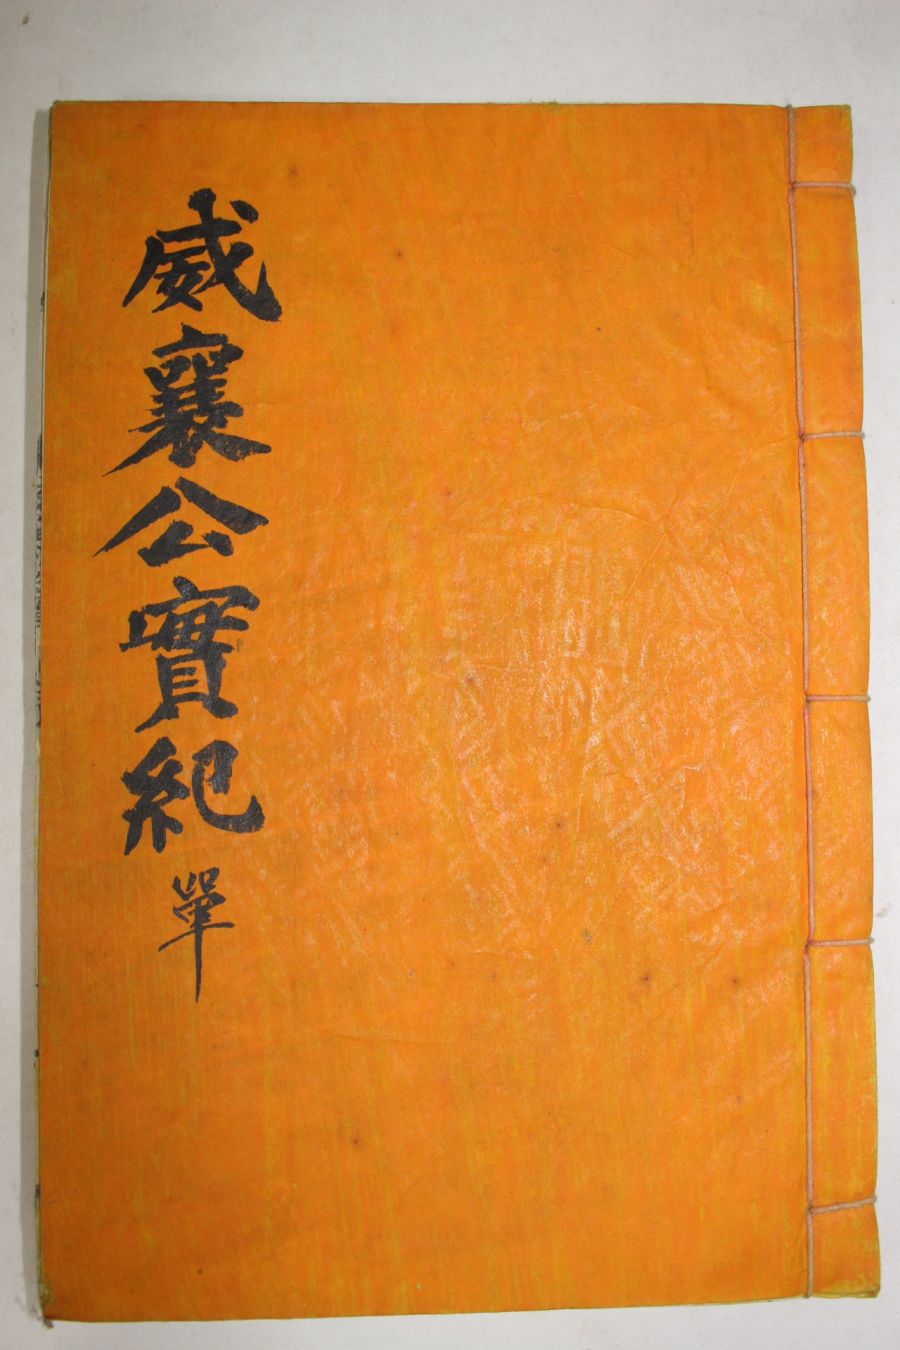 威襄公實紀 單